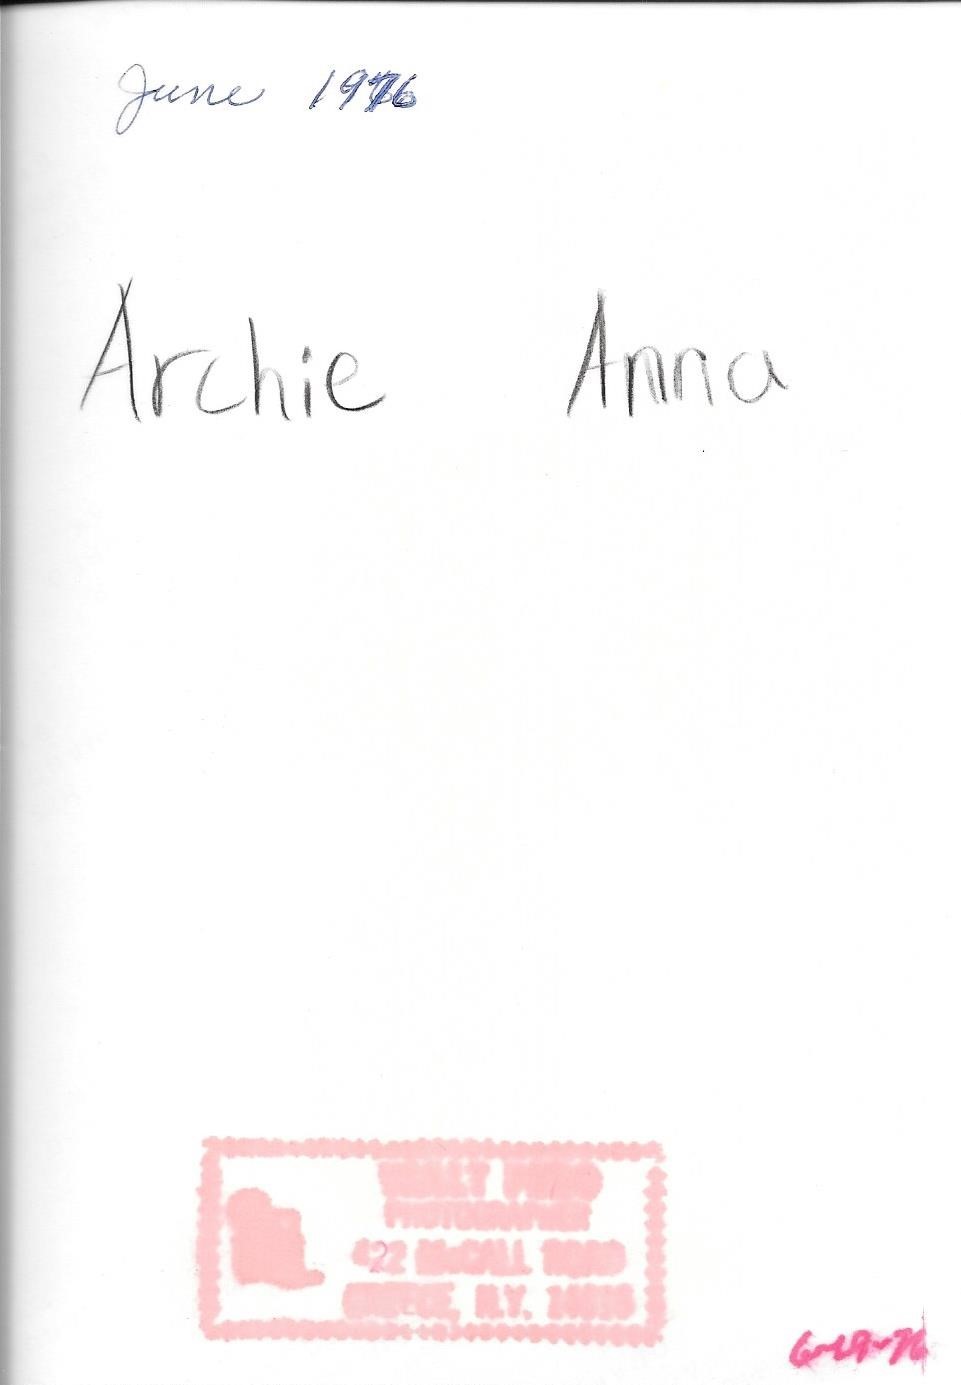 June 1976
Archie Anna
PHOTOGRAPHER
422 McCALL ROAD
GREECE, N.Y.
6-19-76